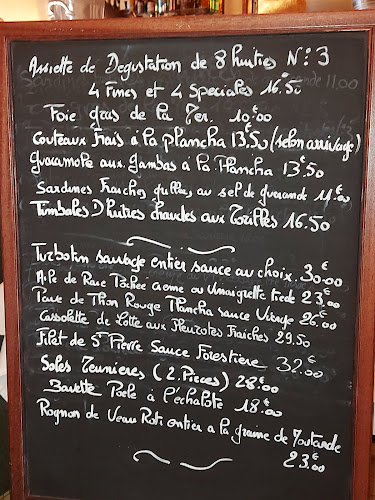 Assiette de Degustation de 8 huitres N°: 3
4 Fines et 4 Speciales 16.€50
Foie gras de la Mer. 10.€00
Couteaux Frais à la plancha 13.€50 (selon arrivage)
Guacamole aux Gambas à la Plancha 13.€50
Sardines Fraiches grillées au sel de guerande 11.€00
Timbales D'huitres chaudes aux Truffes 16.50
Turbotin sauvage entier sauce au choix. 30.€00
Aile de Raie Pochée creme ou Vinaigrette tiede 23.€00
Pavé de Thon Rouge Plancha sauce Vierge 26.€00
Cassolette de Lotte aux Pleurotes Fraiches 29.50
Filet de St Pierre Sauce Forestiere 32.€00
Soles Meunieres (2. Pieces) 28.€00
Bavette Poele à l'échalote 18.€00
Rognon de Veau Roti entier a la graine de Moutarde
23.€00